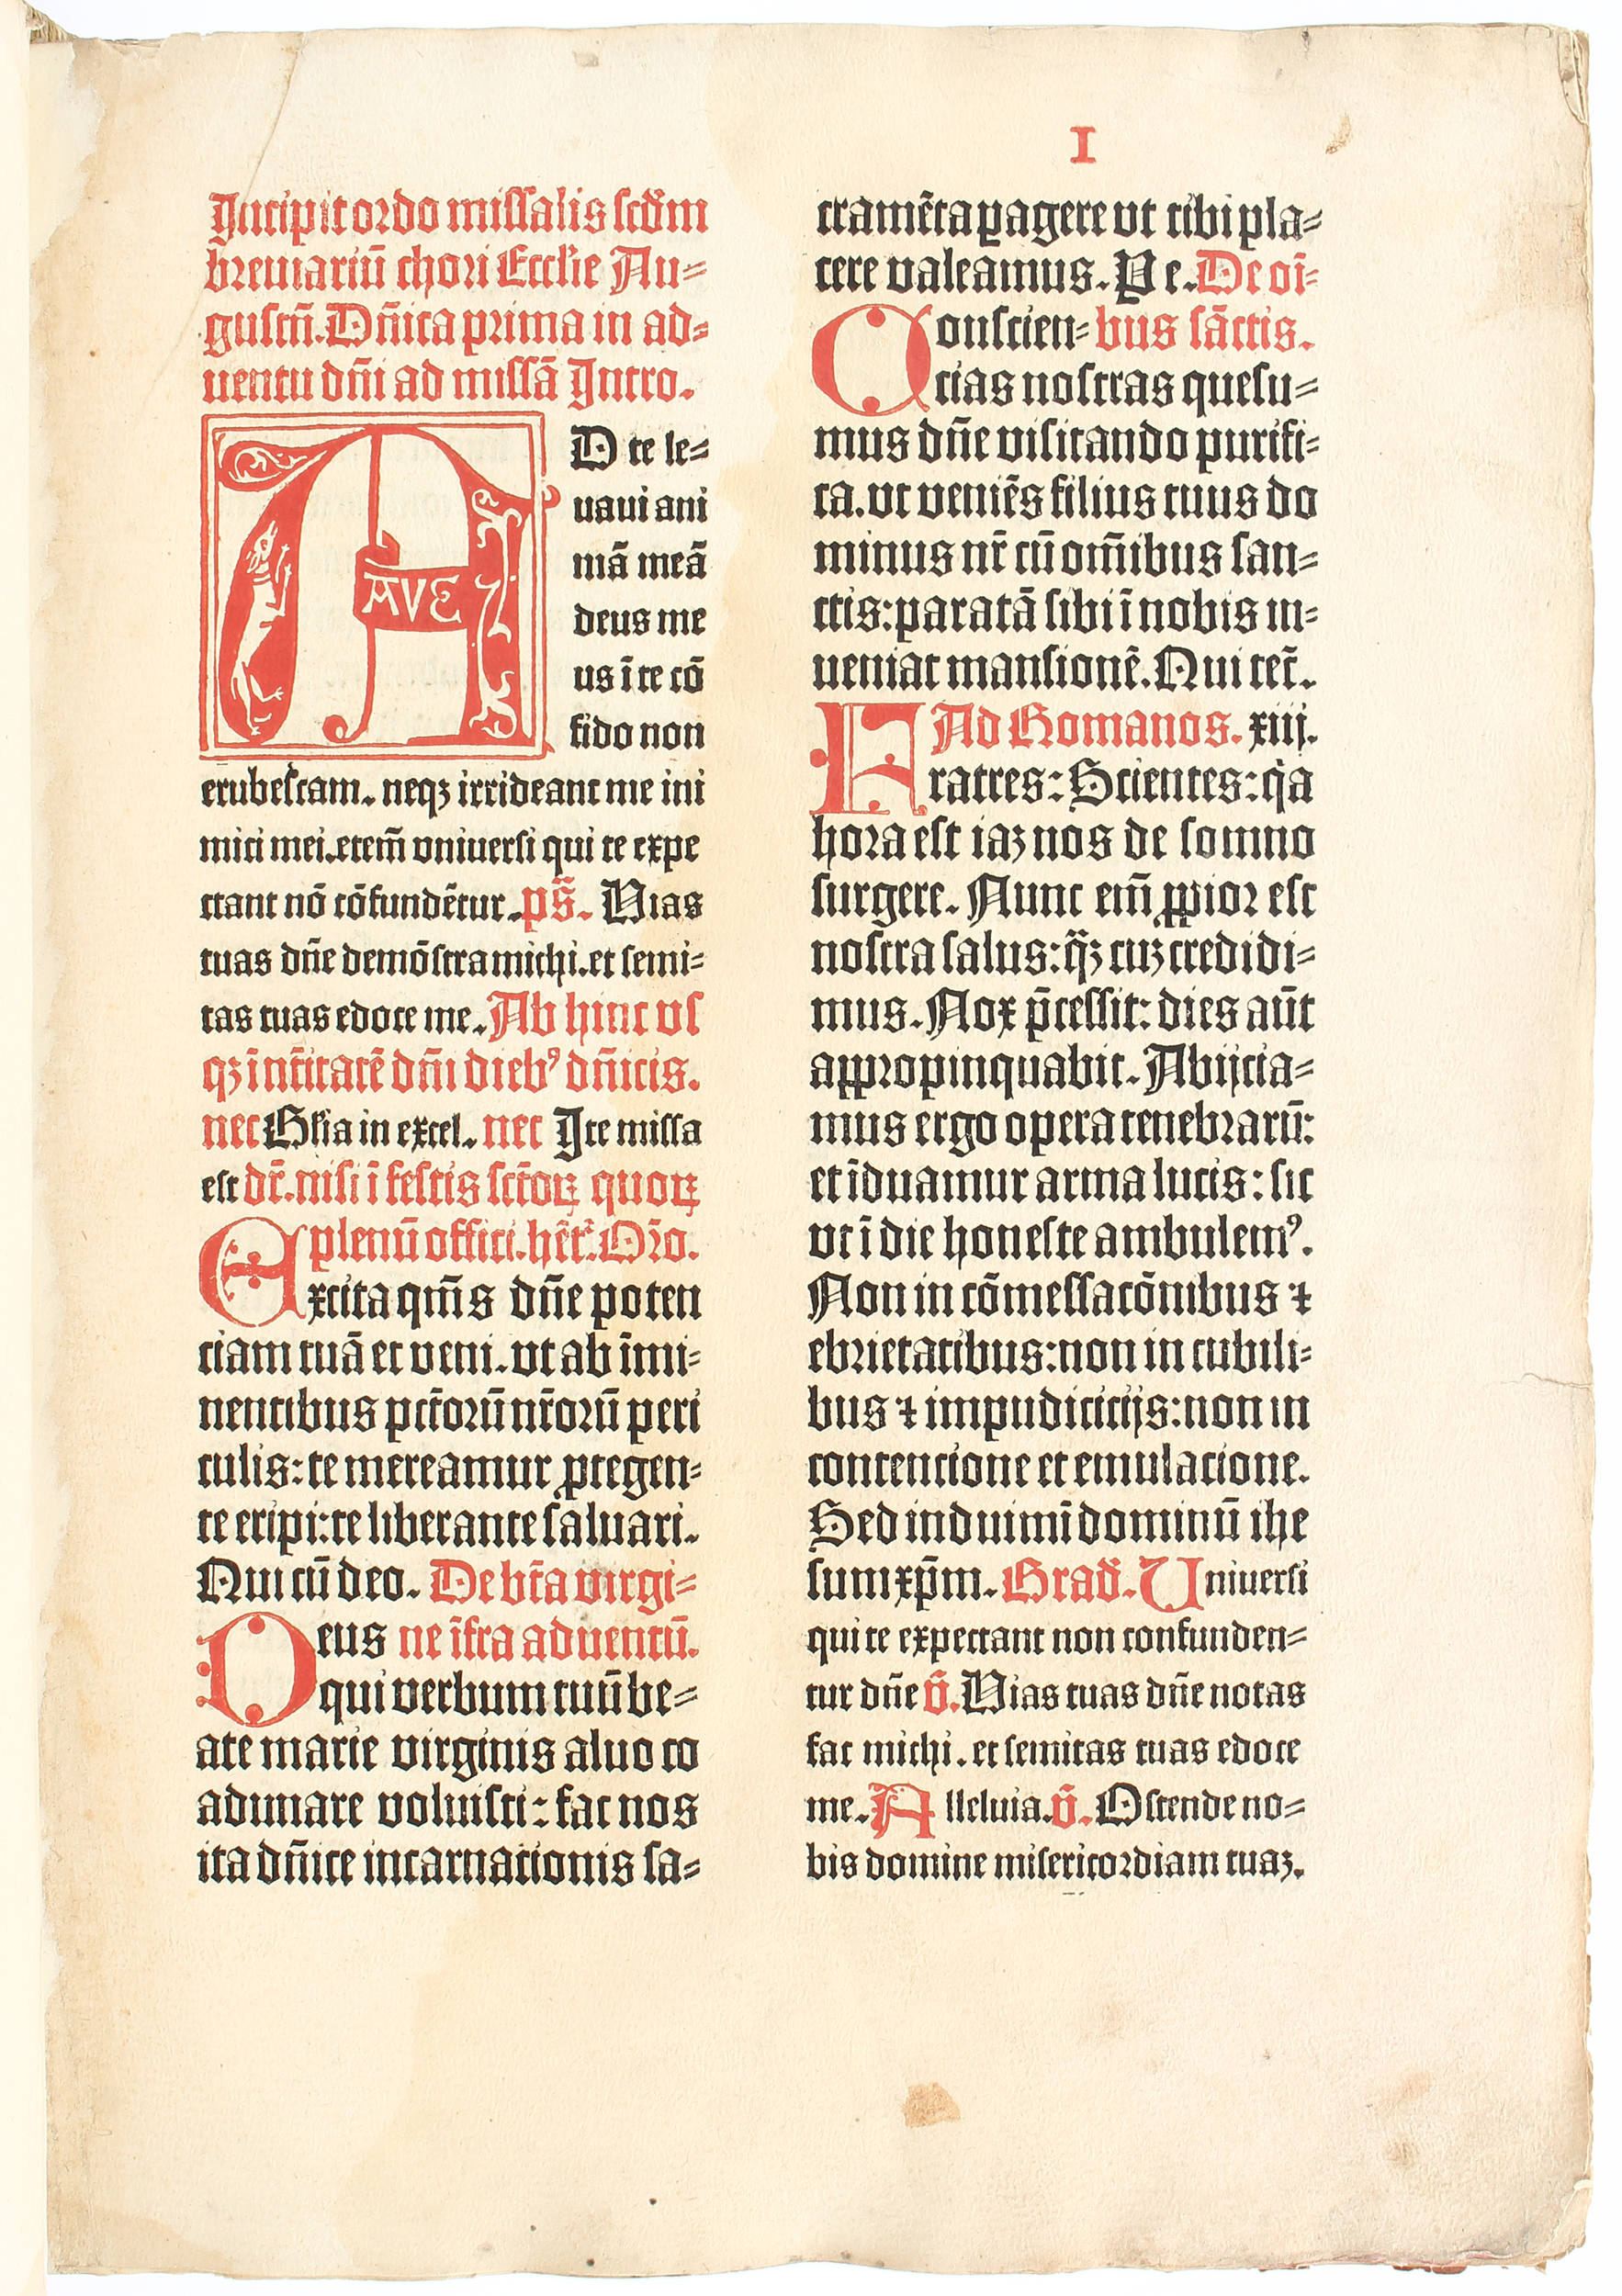 I
Incipit ordo missalis scd̃m
breuiariũ chori Ecclie Au=
gustñ. Dñica prima in ad=
uentu dñi ad missã Intro.
AVE
AD te le=
uaui ani
mã meã
deus me
us ĩ te cõ
fido non
erubescam. neqꝫ irrideant me ini
mici mei. etem̃ vniuersi qui te expe
ctant nõ cõfundẽtur. ps̃. Vias
tuas dñe demõstra michi. et semi=
tas tuas edoce me. Ab hinc vs
qꝫ ĩ nt̃itatẽ dñi diebꝰ dñicis.
nec Glia in excel. nec Ite missa
est dr̃. nisi ĩ festis sct̃oꝝ quoꝝ
plenũ offici. hẽt̃. Oro.
Excita qm̃s dñe poten
ciam tuã et veni. vt ab ĩmi=
nentibus pct̃orũ nr̃orũ peri
culis: te mereamur ꝓtegen=
te eripi: te liberante saluari.
Qui cũ deo. De bt̃a virgi=
Deus ne ĩfra aduentũ.
qui verbum tuũ be=
ate marie virginis aluo co
adunare voluisti: fac nos
ita dñice incarnationis sa=
cramẽta ꝑagere vt tibi pla=
cere valeamus. Pe. De oĩ=
Conscien= bus sãctis.
cias nostras quesu=
mus dñe visitando purifi=
ca. vt veniẽs filius tuus do
minus nr̃ cũ om̃ibus san=
ctis: paratã sibi ĩ nobis in=
ueniat mansionẽ. Qui tet̃.
Ad Romanos. xiij.
Fratres: Scientes: qꝛa
hora est iaꝫ nos de somno
surgere. Nunc em̃ ꝓpior est
nostra salus: q̃ꝫ cuꝫ credidi=
mus. Nox p̃cessit: dies aũt
appropinquabit. Abijcia=
mus ergo opera tenebrarũ:
et ĩduamur arma lucis: sic
vt ĩ die honeste ambulemꝰ.
Non in cõmessacõnibus ⁊
ebrietatibus: non in cubili=
bus ⁊ impudicitijs: non in
contencione et emulacione.
Sed induimĩ dominũ ihe
sum xp̃m. Grad̃. Uniuersi
qui te expectant non confunden=
tur dñe ṽ. Vias tuas dñe notas
fac michi. et semitas tuas edoce
me. Alleluia. ṽ. Ostende no=
bis domine misericordiam tuaꝫ.